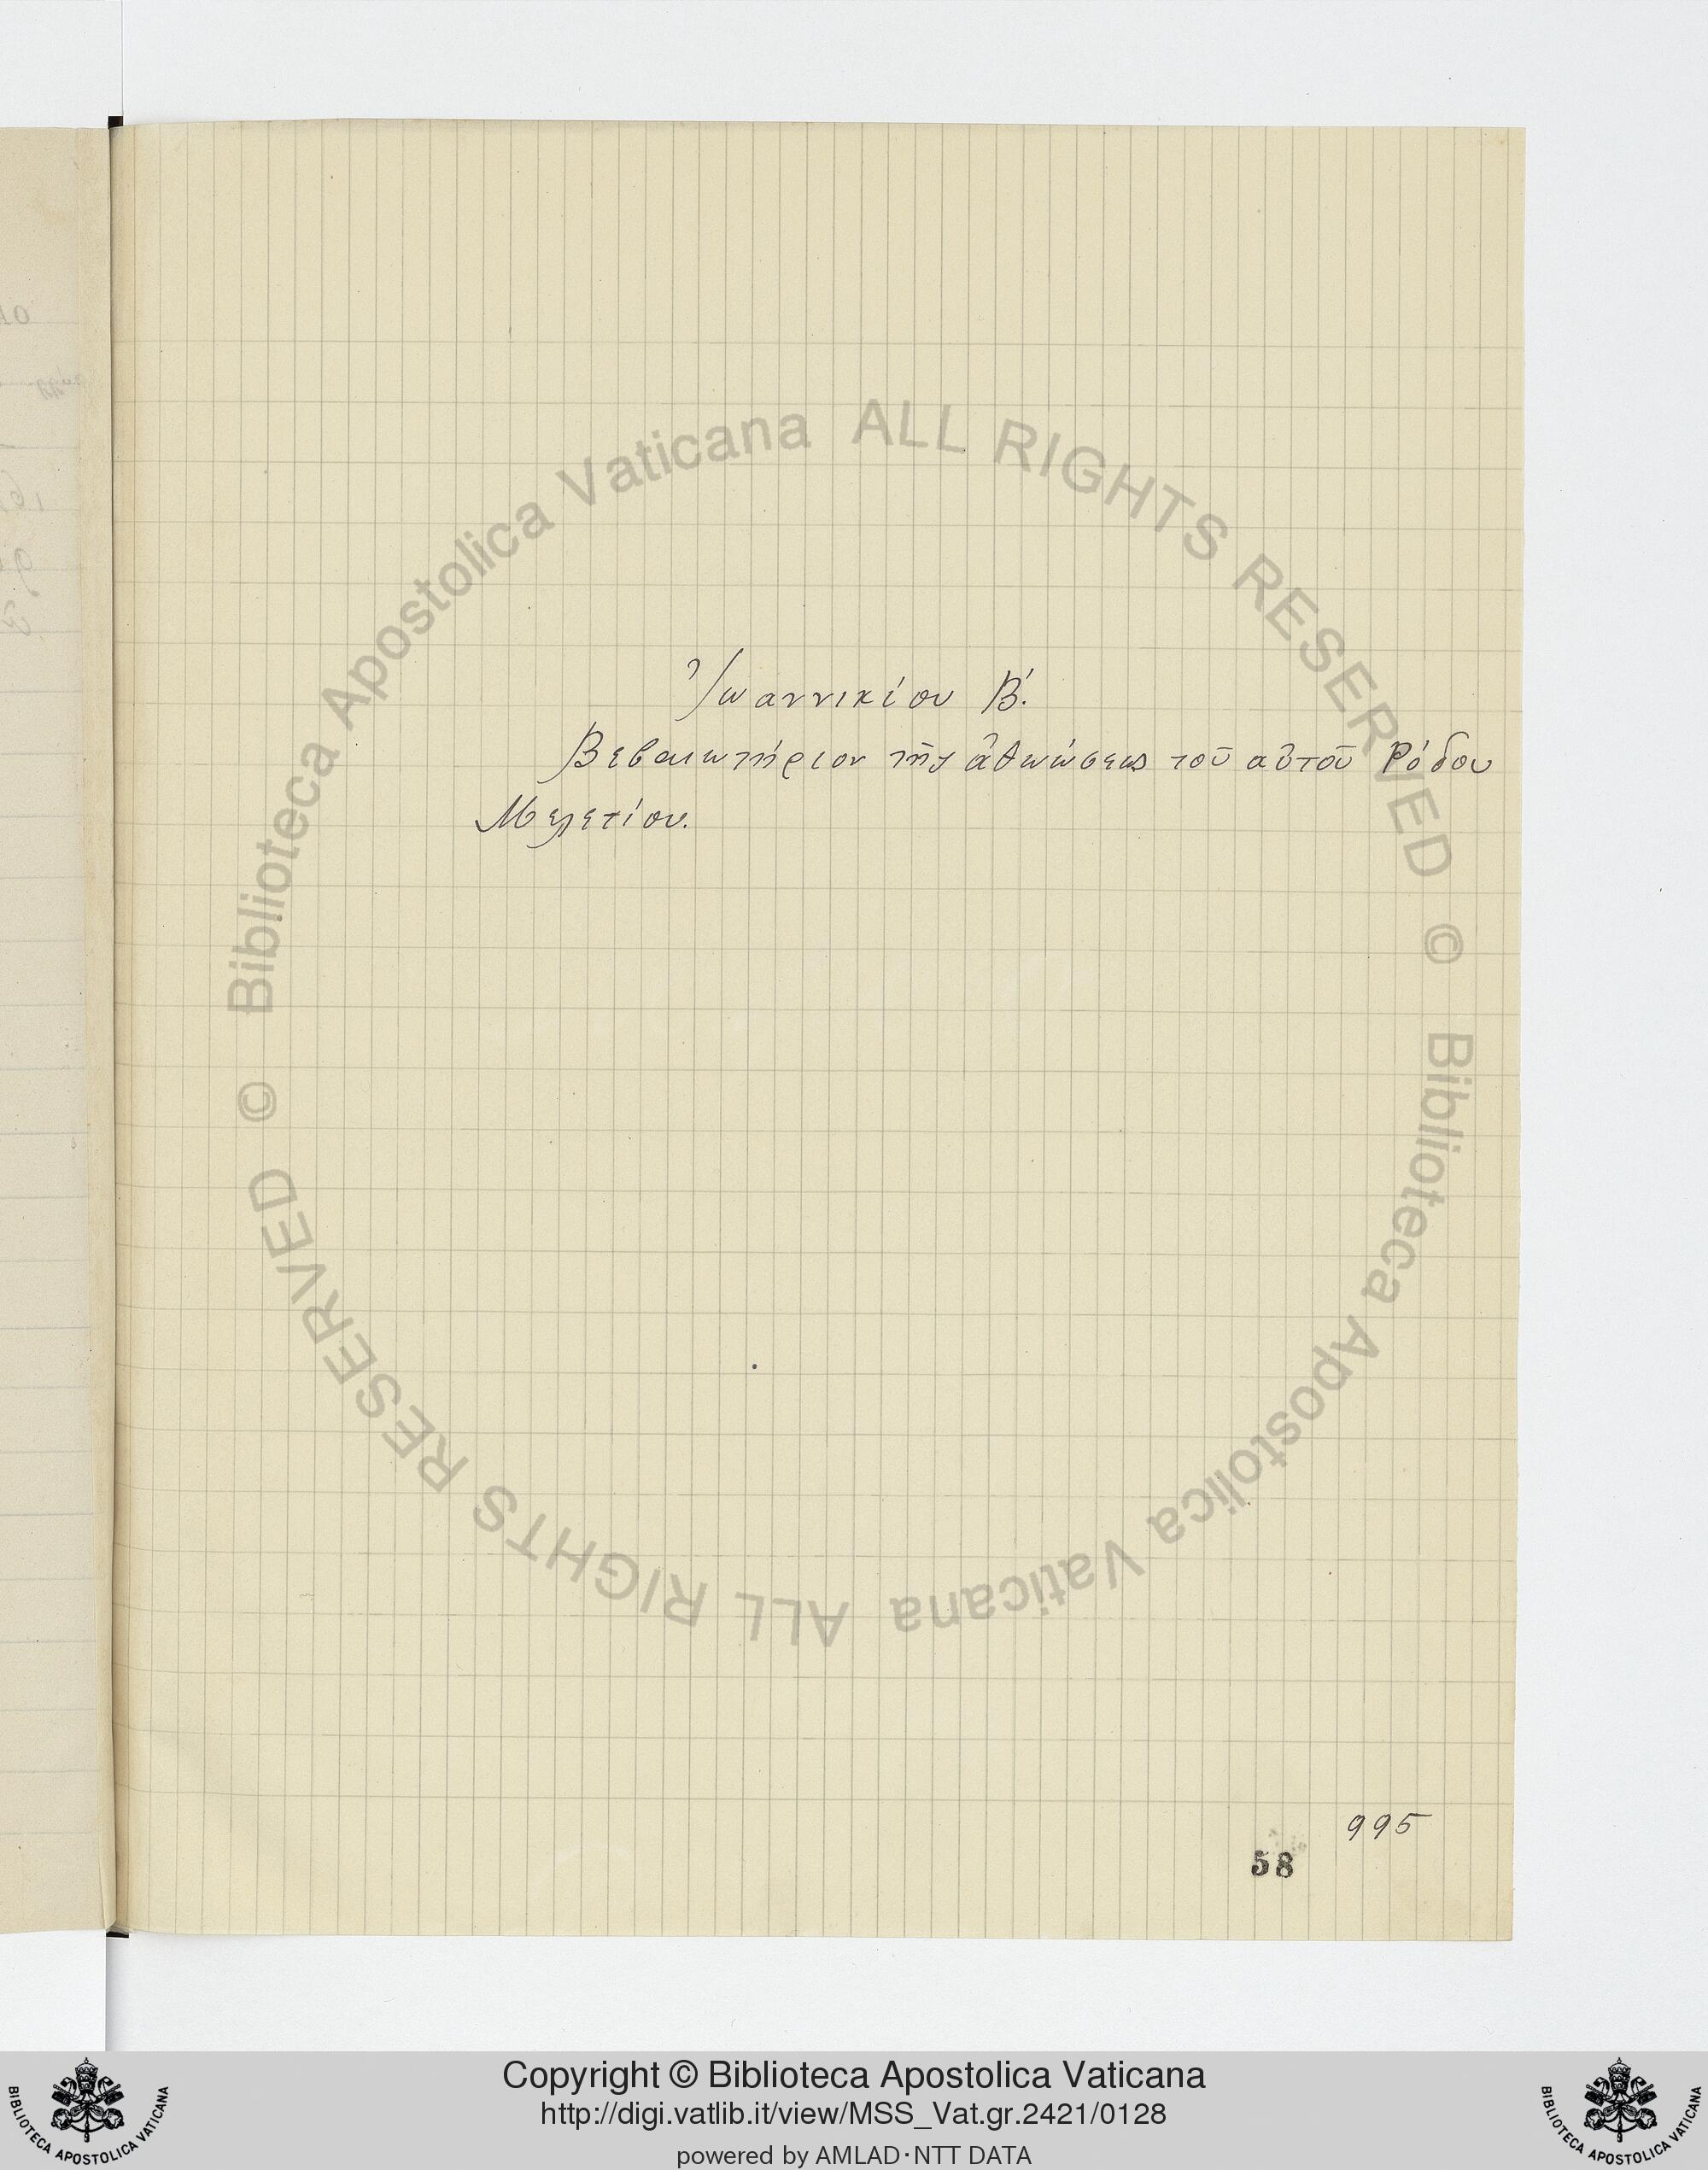 Ἰωαννικίου Β΄.
Βεβαιωτήριον τῆς ἀθωώσεως τοῦ αὐτοῦ Ρόδου
Μελετίου.
995
58
© Biblioteca Apostolica Vaticana ALL RIGHTS RESERVED
© Biblioteca Apostolica Vaticana ALL RIGHTS RESERVED
Copyright © Biblioteca Apostolica Vaticana
http://digi.vatlib.it/view/MSS_Vat.gr.2421/0128
powered by AMLAD·NTT DATA
BIBLIOTECA APOSTOLICA VATICANA
BIBLIOTECA APOSTOLICA VATICANA